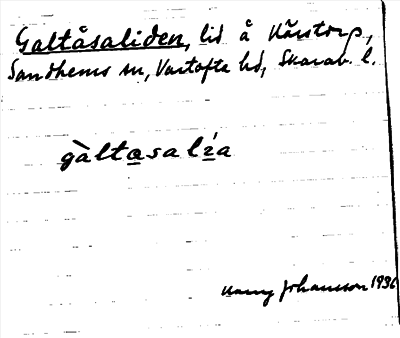 Galtåsaliden, lid å Kårstorp,
Sandhems sn, Vartofte hd, Skarab. l.
gàlta̲salí̲a
Harry Johansson 1936